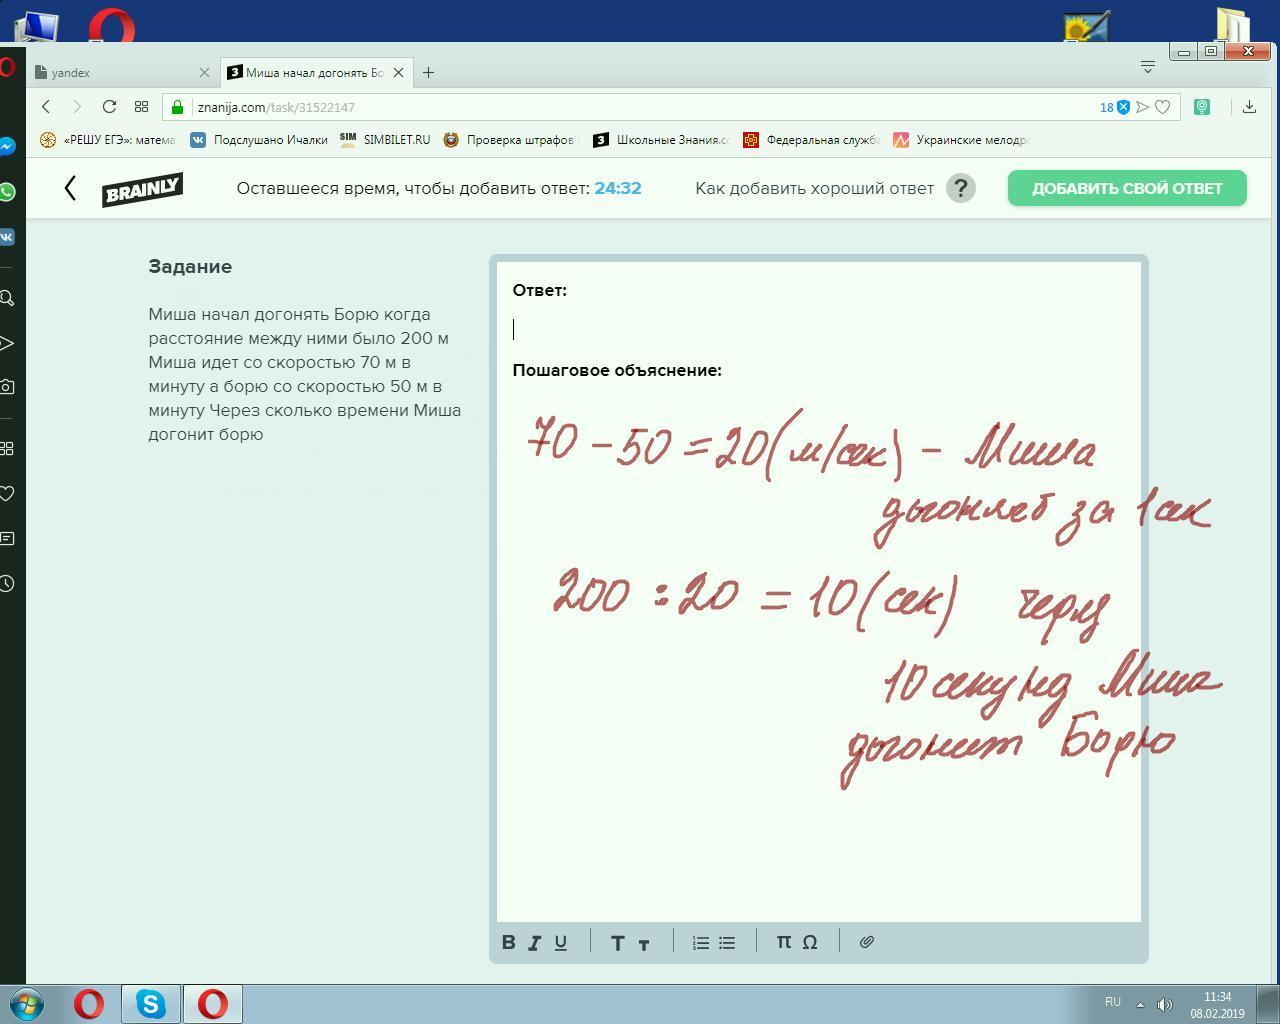 yandex
Миша начал догонять Бо
znanija.com/task/31522147
18
«РЕШУ ЕГЭ»: матема
Подслушано Ичалки
SIM
SIMBILET.RU
Проверка штрафов
Школьные Знания.co
Федеральная служба
Украинские мелодра
BRAINLY
Оставшееся время, чтобы добавить ответ: 24:32
Как добавить хороший ответ ?
ДОБАВИТЬ СВОЙ ОТВЕТ
Задание
Миша начал догонять Борю когда
расстояние между ними было 200 м
Миша идет со скоростью 70 м в
минуту а борю со скоростью 50 м в
минуту Через сколько времени Миша
догонит борю
Ответ:
Пошаговое объяснение:
70 - 50 = 20 (м/сек) - Миша
догоняет за 1 сек
200 : 20 = 10 (сек) через
10 секунд Миша
догонит Борю
B I U T т π Ω
RU
11:34
08.02.2019